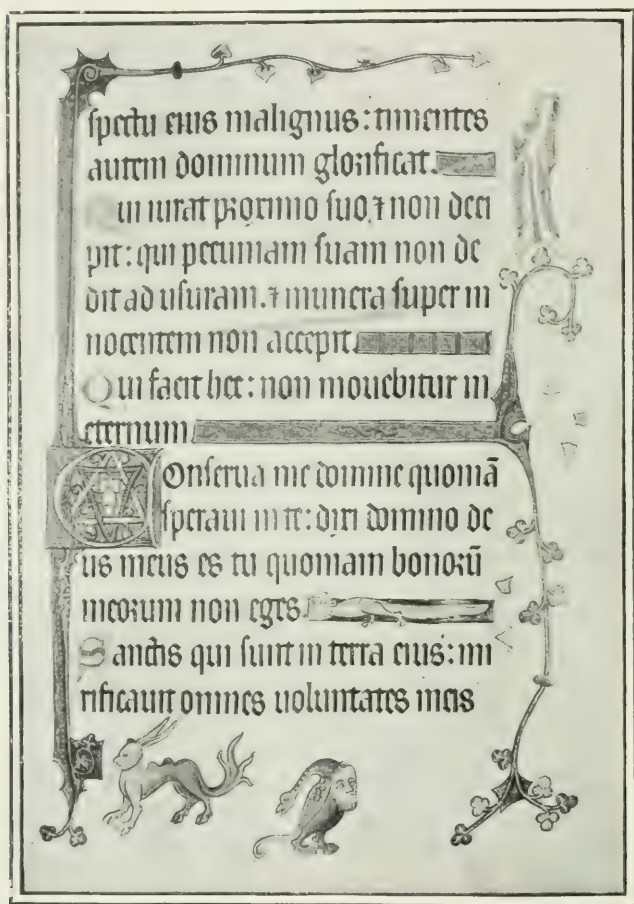 spectu eius malignus: timentes
autem dominum glorificat.
Qui iurat proximo suo, ⁊ non deci
pit: qui pecuniam suam non de
dit ad usuram. ⁊ munera super in
nocentem non accepit.
Qui facit hec: non mouebitur in
eternum.
Conserua me domine quoniā
speraui in te: dixi domino de
us meus es tu quoniam bonorū
meorum non eges.
Sanctis qui sunt in terra eius: mi
rificauit omnes uoluntates meas